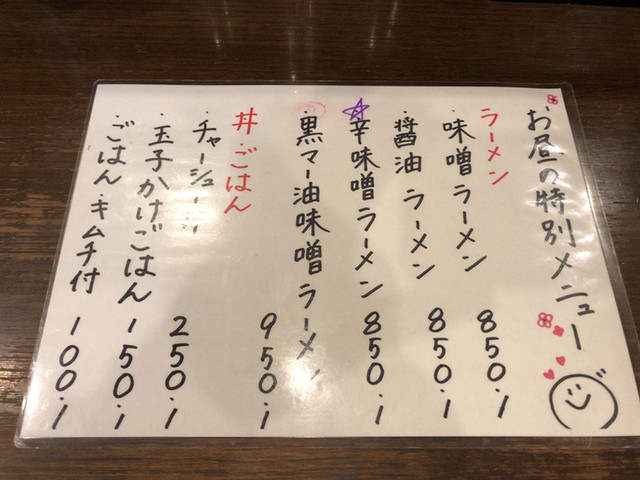 お昼の特別メニュー
ラーメン
・味噌ラーメン 850.-
・醤油ラーメン 850.-
辛味噌ラーメン 850.-
・黒マー油味噌ラーメン 950.-
丼・ごはん
・チャーシュー丼 250.-
・玉子かけごはん 150.-
・ごはん キムチ付 100.-